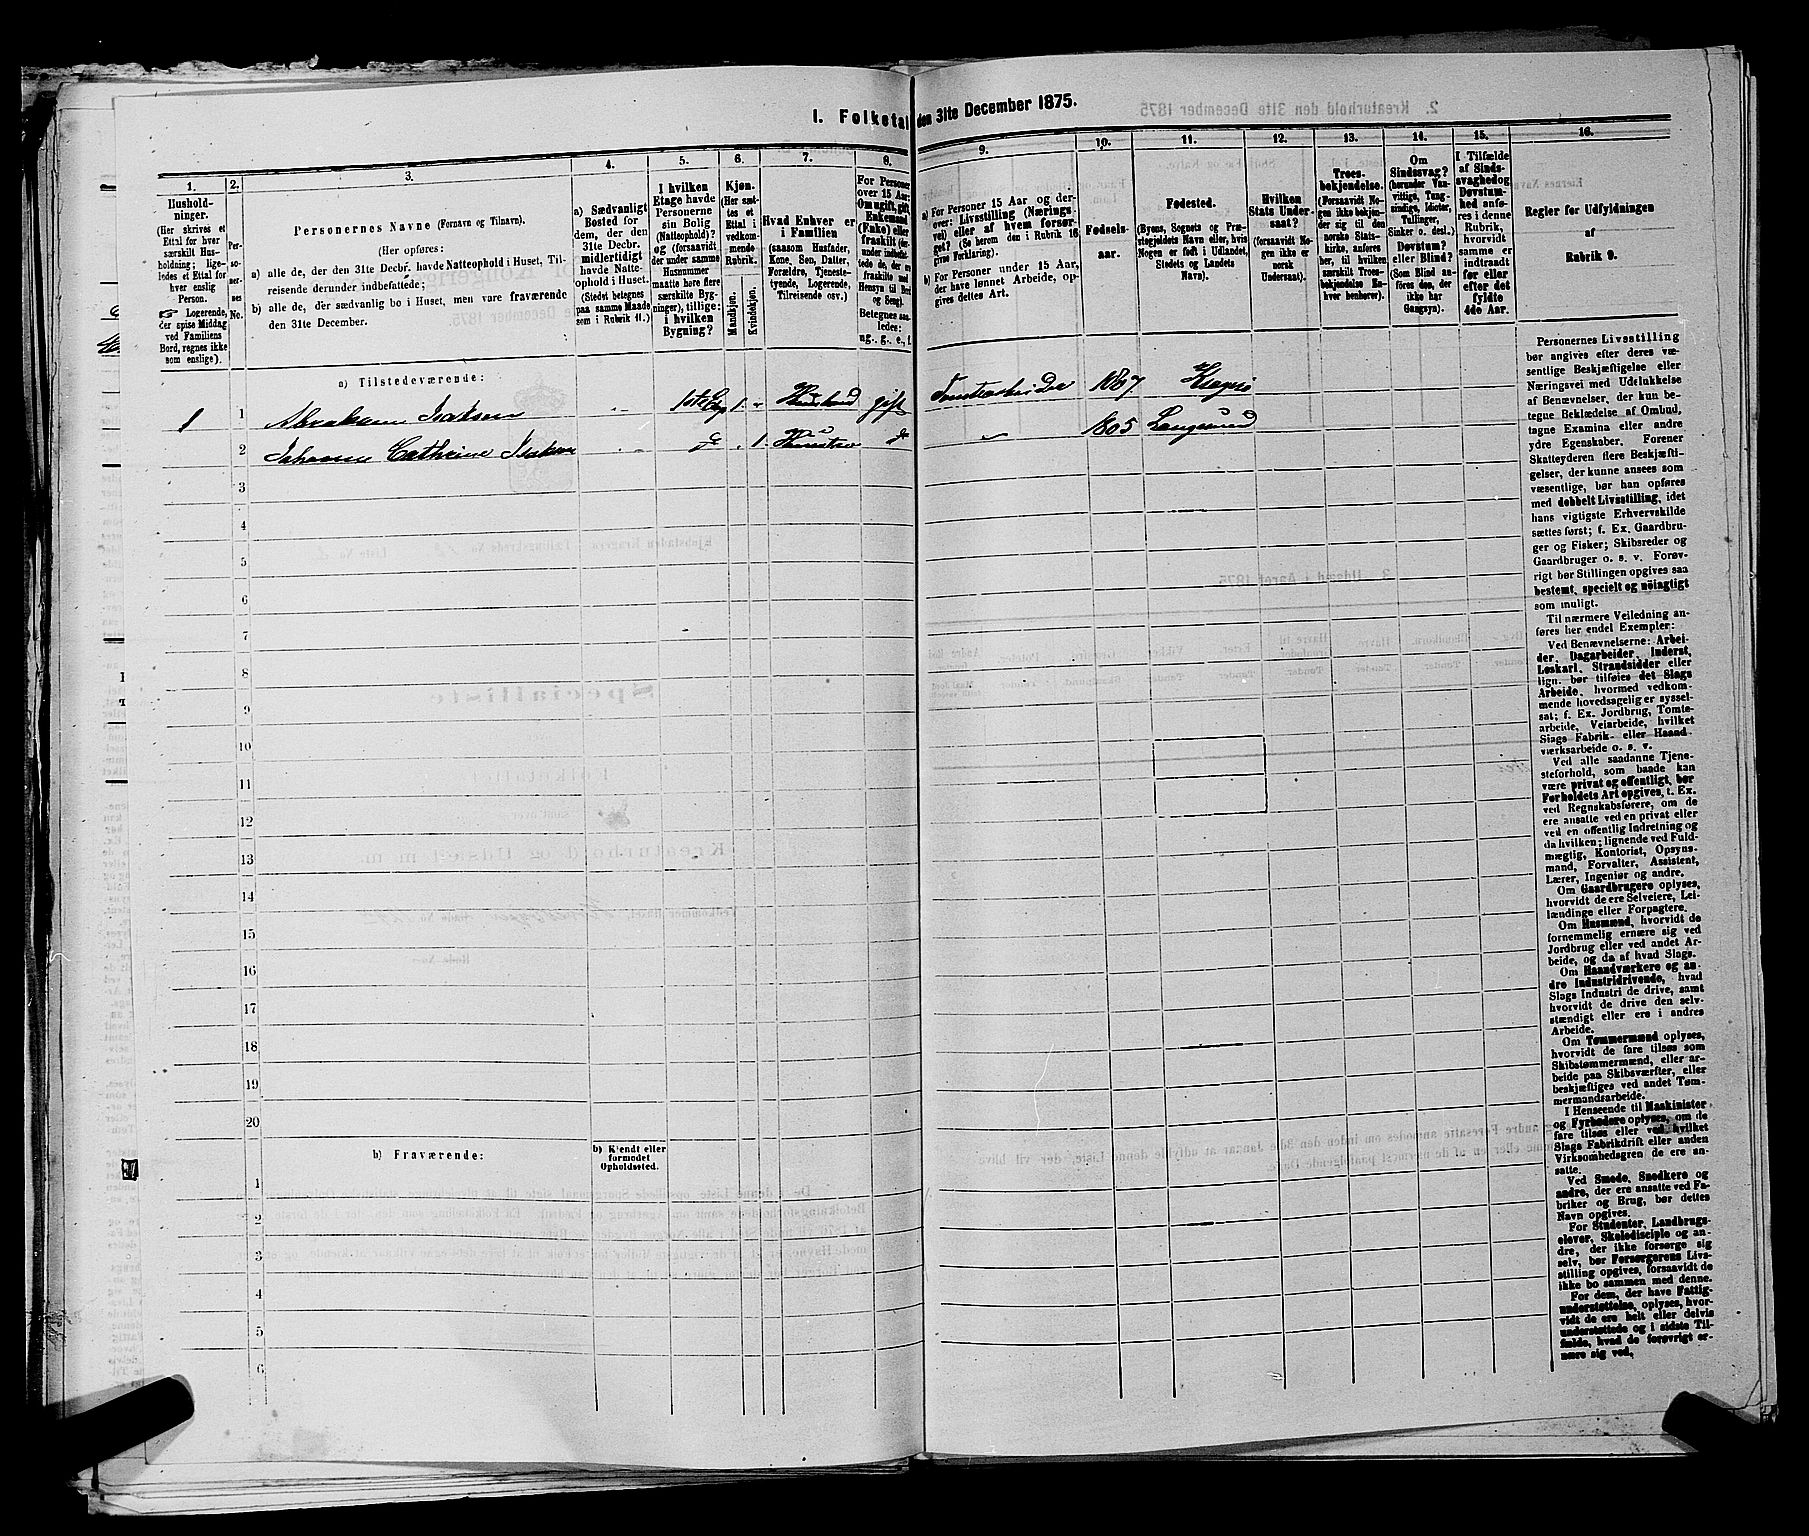 1. Folketal den 31te December 1875.
1.
Hushold-
ninger.
(Her skrives et
Ettal for hver
særskilt Hus-
holdning; lige-
ledes et Ettal for
hver enslig
Person.
☞ Logerende,
der spise Middag
ved Familiens
Bord, regnes ikke
som enslige).
2.
Per-
so-
ner-
nes
No.
3.
Personernes Navne (Fornavn og Tilnavn).
(Her opføres:
a) alle de, der den 31te Decbr. havde Natteophold i Huset, Til-
reisende derunder indbefattede;
b) alle de, der sædvanlig bo i Huset, men vare fraværende
den 31te December.
4.
a) Sædvanligt
Bosted for
dem, der den
31te Decbr.
midlertidigt
havde Natte-
ophold i Huset.
(Stedet betegnes
paa samme Maade
som i Rubrik 11.)
5.
I hvilken
Etage havde
Personerne
sin Bolig
(Natteophold)?
og (forsaavidt
der under samme
Husnummer
maatte høre flere
særskilte Byg-
ninger), tillige:
i hvilken
Bygning?
6.
Kjøn.
(Her sæt-
tes et
Ettal i
vedkom-
mende
Rubrik.
Mandkjøn.
Kvindekjøn.
7.
Hvad Enhver er
i Familien
(saasom Husfader,
Kone, Søn, Datter,
Forældre, Tjeneste-
tyende, Logerende,
Tilreisende osv.)
8.
For Personer
over 15 Aar:
Om ugift, gift,
Enkemand
(Enke) eller
fraskilt
Hensyn til Bord
og Seng).
Betegnes saa-
ledes:
ug., g., e., f.
9.
a) For Personer 15 Aar og der-
over: Livsstilling (Nærings-
vei) eller af hvem forsør-
get? (Se herom den i Rubrik 16
givne Forklaring).
b) For Personer under 15 Aar,
der have lønnet Arbeide, op-
gives dettes Art.
10.
Fødsels-
aar.
11.
Fødested.
(Byens, Sognets og Præ-
stegjeldets Navn eller, hvis
Nogen er født i Udlandet,
Stedets og Landets
Navn).
12.
Hvilken
Stats Under-
saat?
(forsaavidt No-
gen ikke er
norsk
Undersaat).
13.
Troes-
bekjendelse.
(Forsaavidt No-
gen ikke bekjen-
der sig til den
norske Stats-
kirke, anføres
her, til hvilken
særskilt Troes-
bekjendelse En-
hver henhører).
14.
Om
Sindssvag?
(herunder Van-
vittige, Tung-
sindige, Idioter,
Tullinger,
Sinker o. desl.)
Døvstum?
eller Blind?
(Som Blind an-
føres den, der
ikke har
Gangsyn).
15.
I Tilfælde
af Sinds-
svaghed og
Døvstum-
hed anfø-
res i denne
Rubrik,
hvorvidt
samme er
indtraadt
før eller
efter det
fyldte
4de Aar.
16.
Regler for Udfyldningen
af
Rubrik 9.
a) Tilstedeværende:
1 1 Abraham Isaksen 1ste Etg 1 Husbond gift Tomtearbeider 1807 Kragerø
2 Johanne Cathrine Isaksen do 1 Hustru do 1805 Langesund
3
4
5
6
7
8
9
10
11
12
13
14
15
16
17
18
19
20
b) Fraværende:
b) Kjendt eller
formodet
Opholdssted.
1
2
3
4
5
6
Personernes Livsstilling
bør angives efter deres væ-
sentlige Beskjæftigelse eller
Næringsvei med Udelukkelse
af Benævnelser, der kun be-
tegne Beklædelse af Ombud,
tagne Examina eller andre
ydre Egenskaber. Forener
Skatteyderen flere Beskjæfti-
gelser, der kunne ansees som
væsentlige, bør han opføres
med dobbelt Livsstilling, idet
hans vigtigste Erhvervskilde
sættes først; f. Ex. Gaardbru-
ger og Fisker; Skibsreder og
Gaardbruger o. s. v. Forøv-
rigt bør Stillingen opgives saa
bestemt, specielt og nøiagtigt
som muligt.
Til nærmere Veiledning an-
føres her endel Exempler:
Ved Benævnelserne: Arbei-
der, Dagarbeider, Inderst,
Løskarl, Strandsidder eller
lign. bør tilføies det Slags
Arbeide, hvormed vedkom-
mende hovedsagelig er syssel-
sat; f. Ex. Jordbrug, Tomte-
arbeide, Veiarbeide, hvilket
Slags Fabrik- eller Haand-
værksarbeide o. s. v.
Ved alle saadanne Tjene-
steforhold, som baade kan
være privat og offentligt, bør
Forholdets Art opgives, t. Ex.
ved Regnskabsførere, om de
ere ansatte ved en privat eller
ved en offentlig Indretning og
da hvilken; lignende ved Fuld-
mægtig, Kontorist, Opsyns-
mand, Forvalter, Assistent,
Lærer, Ingeniør og andre.
Om Gaardbrugere oplyses,
hvorvidt de ere Selveiere, Lei-
lændinge eller Forpagtere.
Om Husmænd, hvorvidt de
fornemmelig ernære sig ved
Jordbrug eller ved andet Ar-
beide, og da af hvad Slags.
Om Haandværkere og an-
dre Industridrivende, hvad
Slags Industri de drive, samt
hvorvidt de drive den selv-
stændigt eller ere i andres
Arbeide.
Om Tømmermænd oplyses,
hvorvidt de fare tilsøs som
Skibstømmermænd, eller ar-
beide paa Skibsværfter, eller
beskjæftiges ved andet Tøm-
mermandsarbeide.
I Henseende til Maskinister
og Fyrbødere oplyses, om de
fare tilsøs eller ved hvilket
Slags Fabrikdrift eller anden
Virksomhedsgren de ere an-
satte.
Ved Smede, Snedkere og
andre, der ere ansatte ved Fa-
briker og Brug, bør dettes
Navn opgives.
For Studenter, Landbrugs-
elever, Skoledisciple og an-
dre, der ikke forsørge sig
selv, bør Forsørgerens Livs-
stilling opgives, forsaavidt de
ikke bo sammen med denne.
For dem, der have Fattig-
understøttelse, oplyses, hvor-
vidt de ere helt eller delvis
understøttede og i sidste Til-
fælde, hvad de forøvrigt er-
nære sig ved.